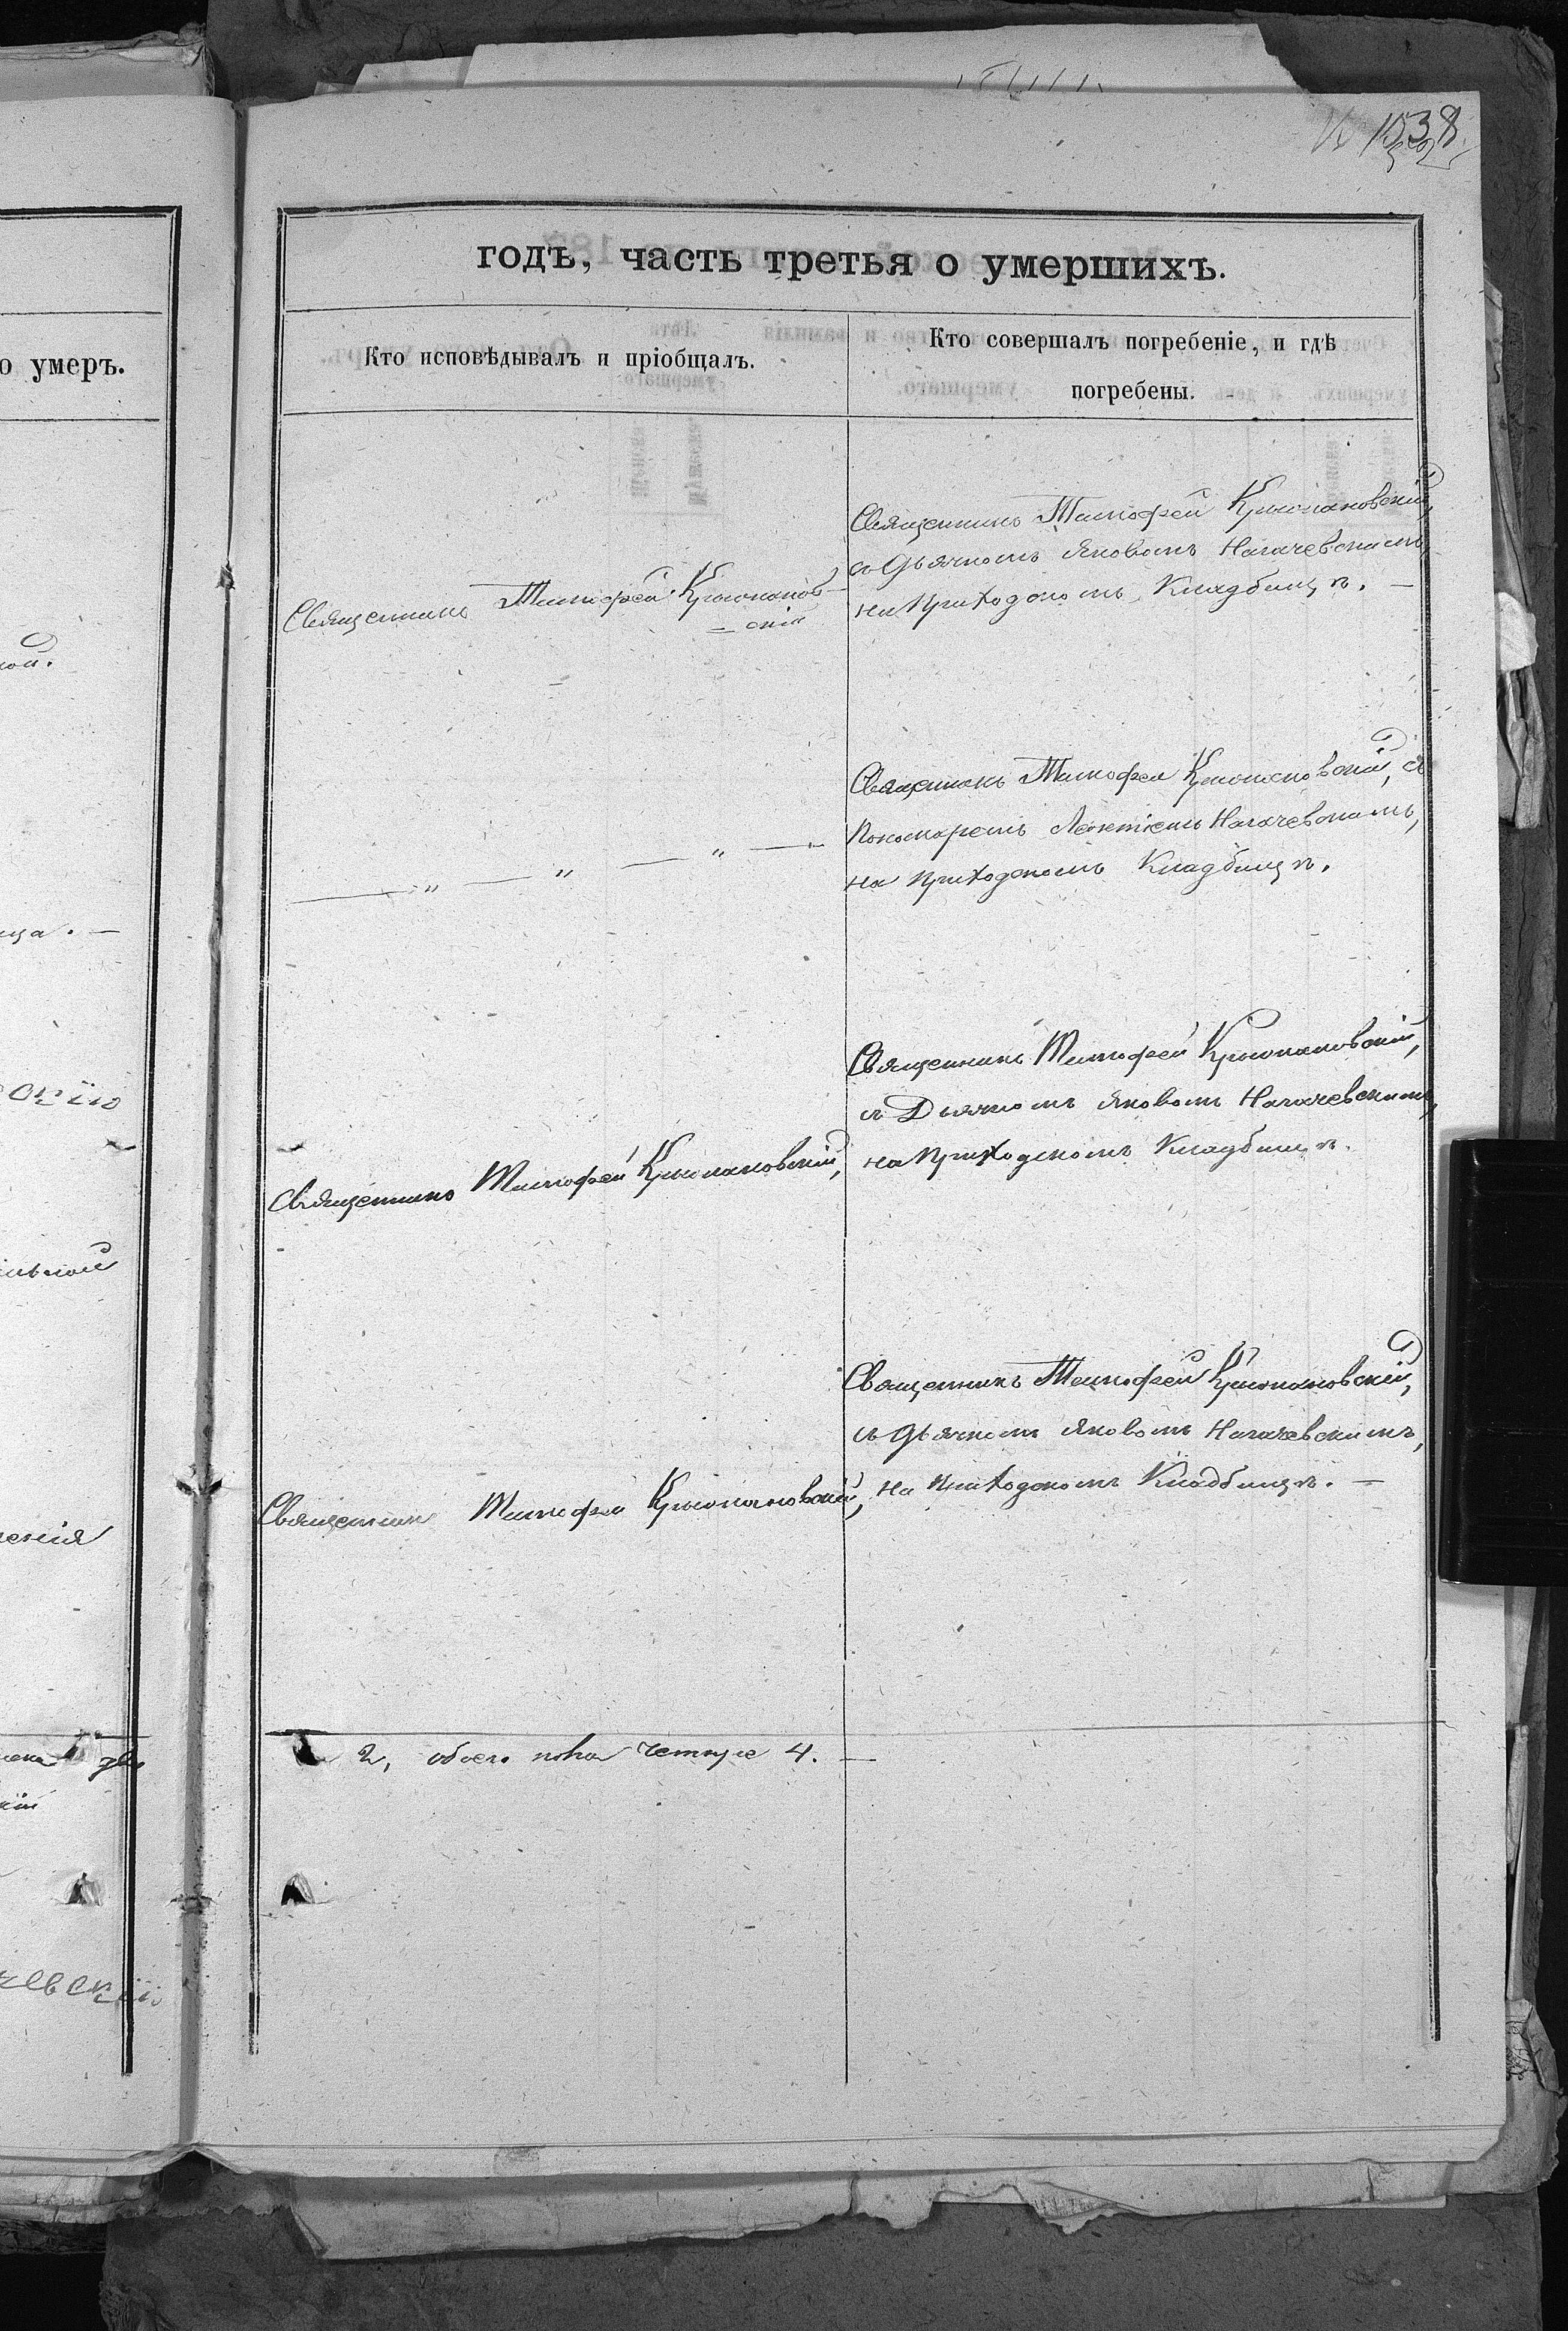 1538
годъ, часть третья о умершихъ.
о умеръ.
Кто исповѣдывалъ и пріобщалъ.
Кто совершалъ погребеніе, и гдѣ
погребены.
Священникъ Тимофей Крыжановскій,
съ Дьячкомъ Яковомъ Нагачевскимъ,
на Приходскомъ Кладбищѣ. —
Священникъ Тимофей Крыжанов-
=скій
Священникъ Тимофей Крыжановскій, съ
Пономаремъ Леонтіемъ Нагачевскимъ,
на Приходскомъ Кладбищѣ.
— " — " — " —
Священникъ Тимофей Крыжановскій,
съ Дьячкомъ Яковомъ Нагачевскимъ,
на Приходскомъ Кладбищѣ.
Священникъ Тимофей Крыжановскій,
Священникъ Тимофей Крыжановскій,
съ Дьячкомъ Яковомъ Нагачевскимъ,
на Приходскомъ Кладбищѣ. —
Священникъ Тимофей Крыжановскій,
2, обоего пола четыре 4. —